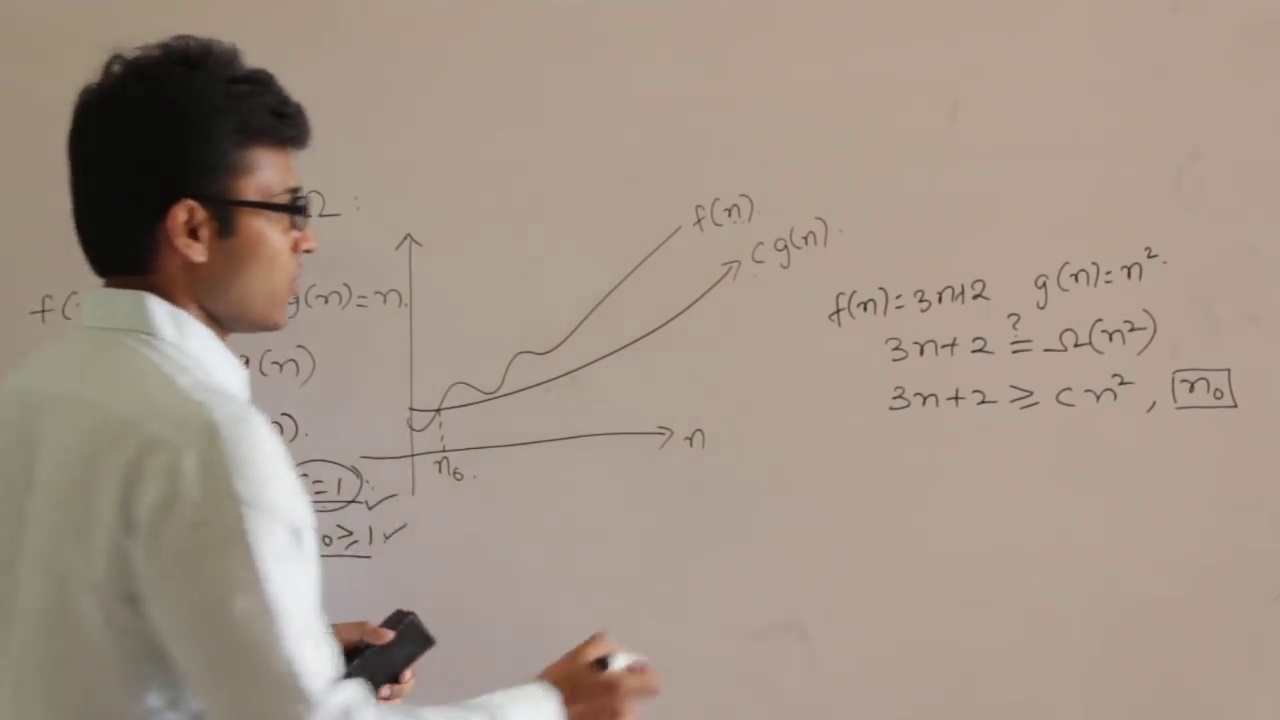 Ω :
f(
g(n) = n.
g(n)
n).
= 1 ✓
0 ≥ 1 ✓
f(n).
c g(n).
n
n₀.
f(n) = 3n+2 g(n) = n².
3n+2 ≟ Ω(n²)
3n+2 ≥ c n² , n₀